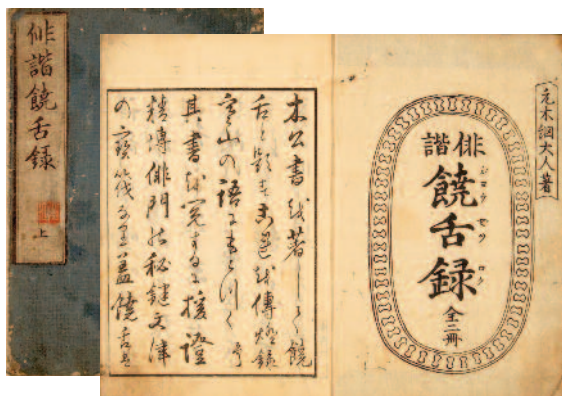 俳諧饒舌録
上
元木網大人著
俳諧
饒舌録
全二冊
木公書越著しく饒
舌と題す 傳燈録
寒山の語にもとつく
其書越 するに援證
精博俳門の秘鍵文津
の寶筏なり蓋饒舌は